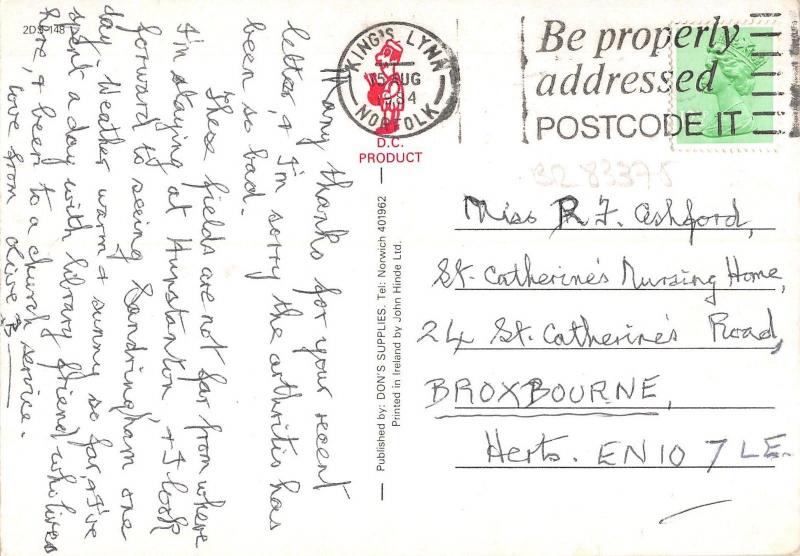 2DS 148
Many thanks for your recent
letter, & I'm sorry the arthritis has
been so bad.
These fields are not far from where
I'm staying at Hunstanton, & I look
forward to seeing Sandringham one
day. Weather warm & sunny so far, & I've
spent a day with library friend who lives
here, & been to a church service.
Love from Olive B
KING'S LYNN
15 AUG
NORFOLK
D.C.
PRODUCT
Be properly
addressed
POSTCODE IT
Published by: DON'S SUPPLIES. Tel: Norwich 401962
Printed in Ireland by John Hinde Ltd.
Miss R F. Ashford,
St. Catherine's Nursing Home,
24 St. Catherine's Road,
BROXBOURNE,
Herts. EN10 7LE.